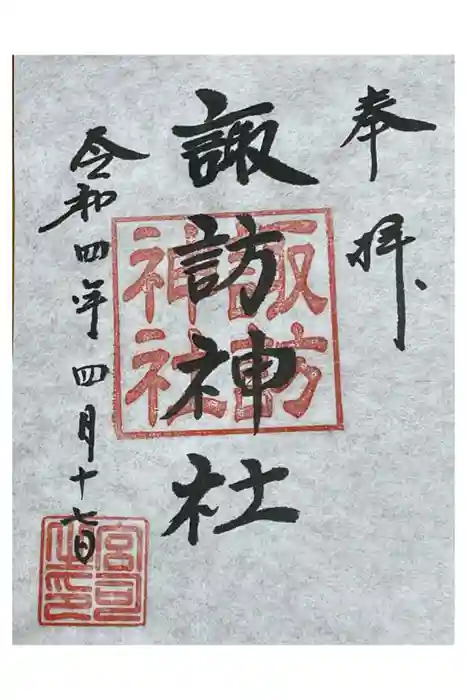 奉拝
諏訪神社
諏訪
神社
令和四年四月十七日
宮司
之印